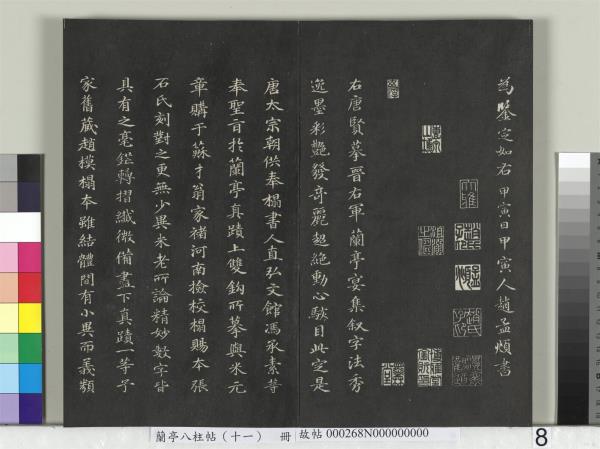 為鑒定如右甲寅日甲寅人趙孟頫書
右唐賢摹晉右軍蘭亭宴集敘字法秀
逸墨彩艷發奇麗超絕動心駭目此定是
唐太宗朝供奉搨書人直弘文館馮承素等
奉聖旨於蘭亭真蹟上雙鉤所摹與米元
章購于蘇才翁家褚河南撿校搨賜本張
石氏刻對之更無少異米老所論精妙數字皆
具有之毫鋩轉摺纖微備盡下真蹟一等予
家舊蔵趙模搨本雖結體間有小異而義類
蘭亭八柱帖（十一） 冊 故帖000268N000000000
8